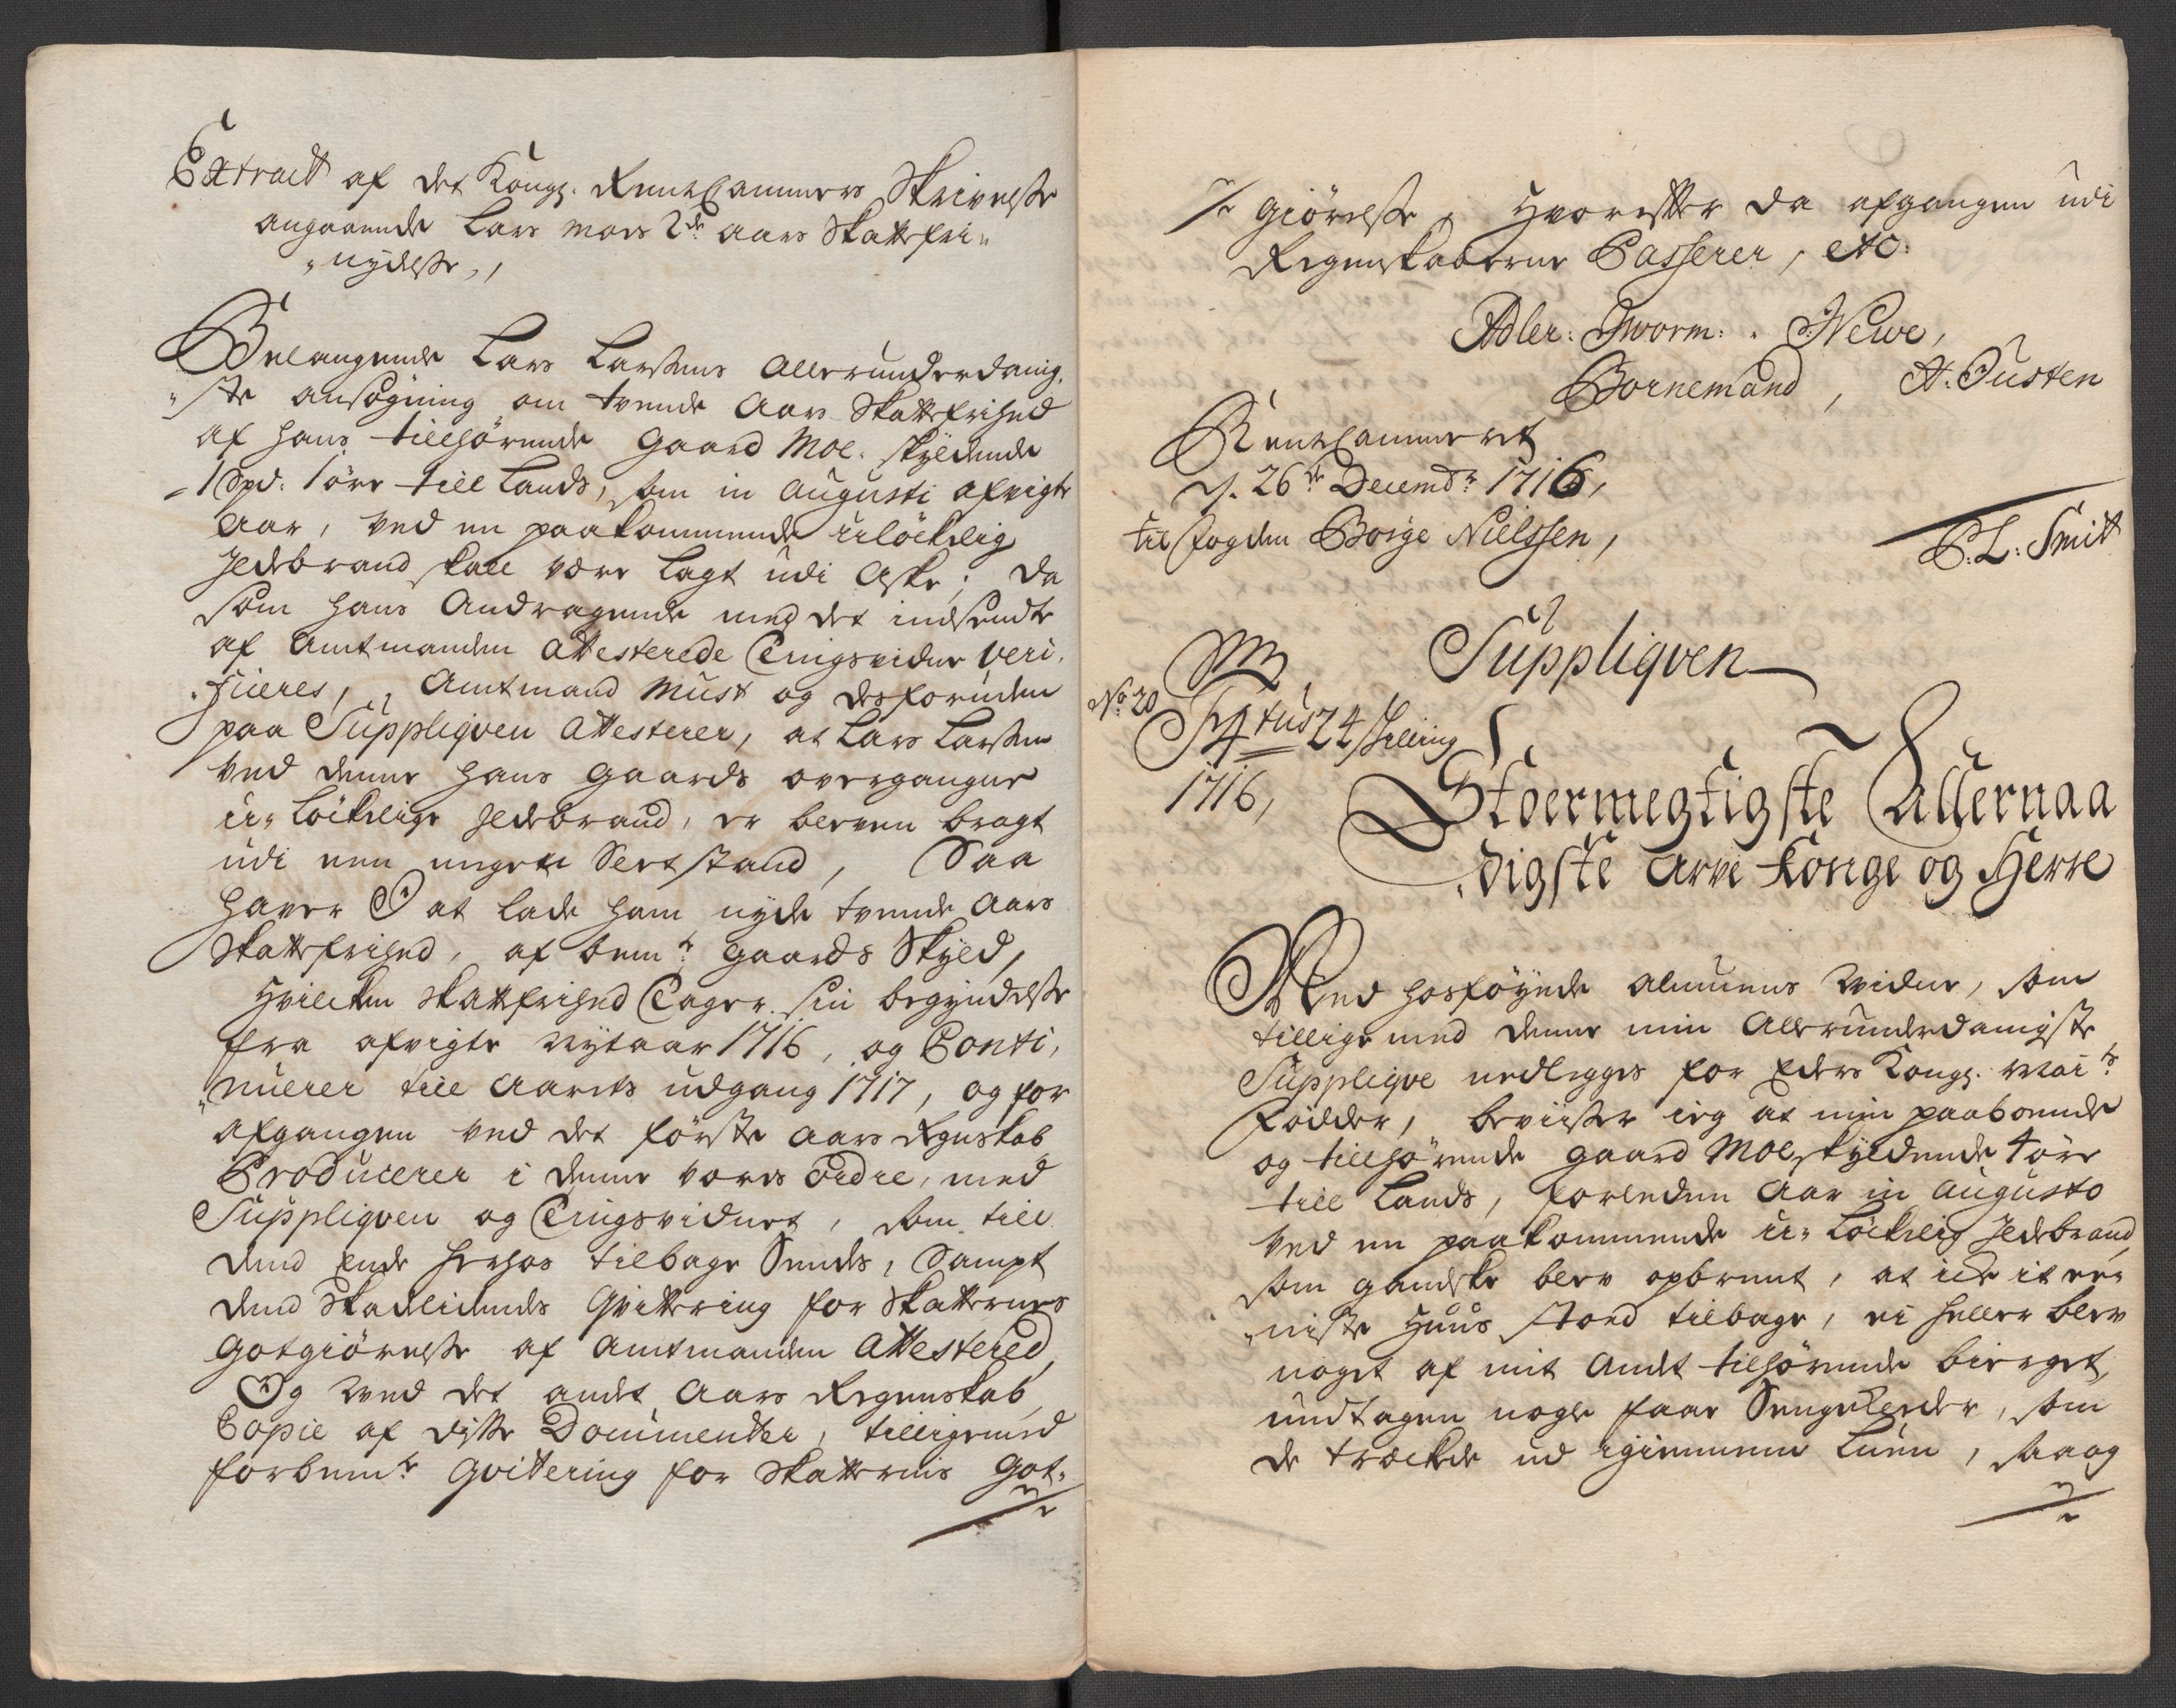 Extract af det Kongl. RenteCammers Skrivelse
angaaende Lars Moes 2de aars Skattefri-
nydelse,,
Belangende Lars Larsens Allerunderdanig-
ste ansøgning om tvende Aars Skattefrihed
af hans tillhørende Gaard Moe, skyldende
1 Spd: 1 øre till Lands, som in Augusti afvigte
Aar, ved en paakommende ulöckelig
Jldebrand skall være lagt udi Aske; Da
som hans Andragende med det indsendte
af Amtmanden Attesterede Tingsvidne veri-
ficeres, Amtmand Must og desforuden
paa Suppliqven Attesterer, at Lars Larsen
ved denne hans Gaards overgangne
u-Löckelige Jldebrand, er bleven bragt
udi een ringere Set stand, Saa
haver I at lade ham nyde tvende Aars
Skattefrihed, af bemte Gaards Skyld,
Hvilcken Skattfrihed Tager sin begyndelse
fra afvigte Nytaar 1716, og Conti-
nuerer till Aarets udgang 1717, og for
Afgangen ved det første Aars Regnskab
Producerer i denne voris Ordre, med
Suppliqven og Tingsvidnet, som till
dend Ende herhos tilbage Sendes, Sampt
dend Skadelidendes Qvittering for Skatternes
Gotgiörelse af Amtmanden Attestered,
Og ved det andet Aars Regenskab,
Copie af disse Documenter, tilligemed
forbemte Qvittering for Skatternis Got-
giørelse, Hvorefter da afgangen udi
Regenskaberne Passerer, etc:
Adler: Jworm: Neve,
Bornemand, A. Tusten
RenteCammeret
d. 26de Decembr 1716,
til fogden Borge Nielssen,
P.L: Smit
Suppliqven
No 20
24 Skilling
1716,
Stoermegtigste Allernaa
digste Arve Konge og Herre
Med hosføyede Almuens Vidne, som
tillige med denne min Allerunderdanigste
Suppliqve nedlegges for Eders Kongl. Maits
Fødder, beviiser ieg at min paaboende
og tillhørende gaard Moe, skyldende 4 øre
till Lands, forleden Aar in Augusto
ved en paakommende u-Löckelig Jldebrand,
som gandske blev opbrent, at icke it ee-
niste Huus stoed tilbage, ei heller blev
noget af mit Andet tilhörende bierget,
undtagen nogle faae Sengeklæder, som
de træckte ud igiennem Luen, saa og